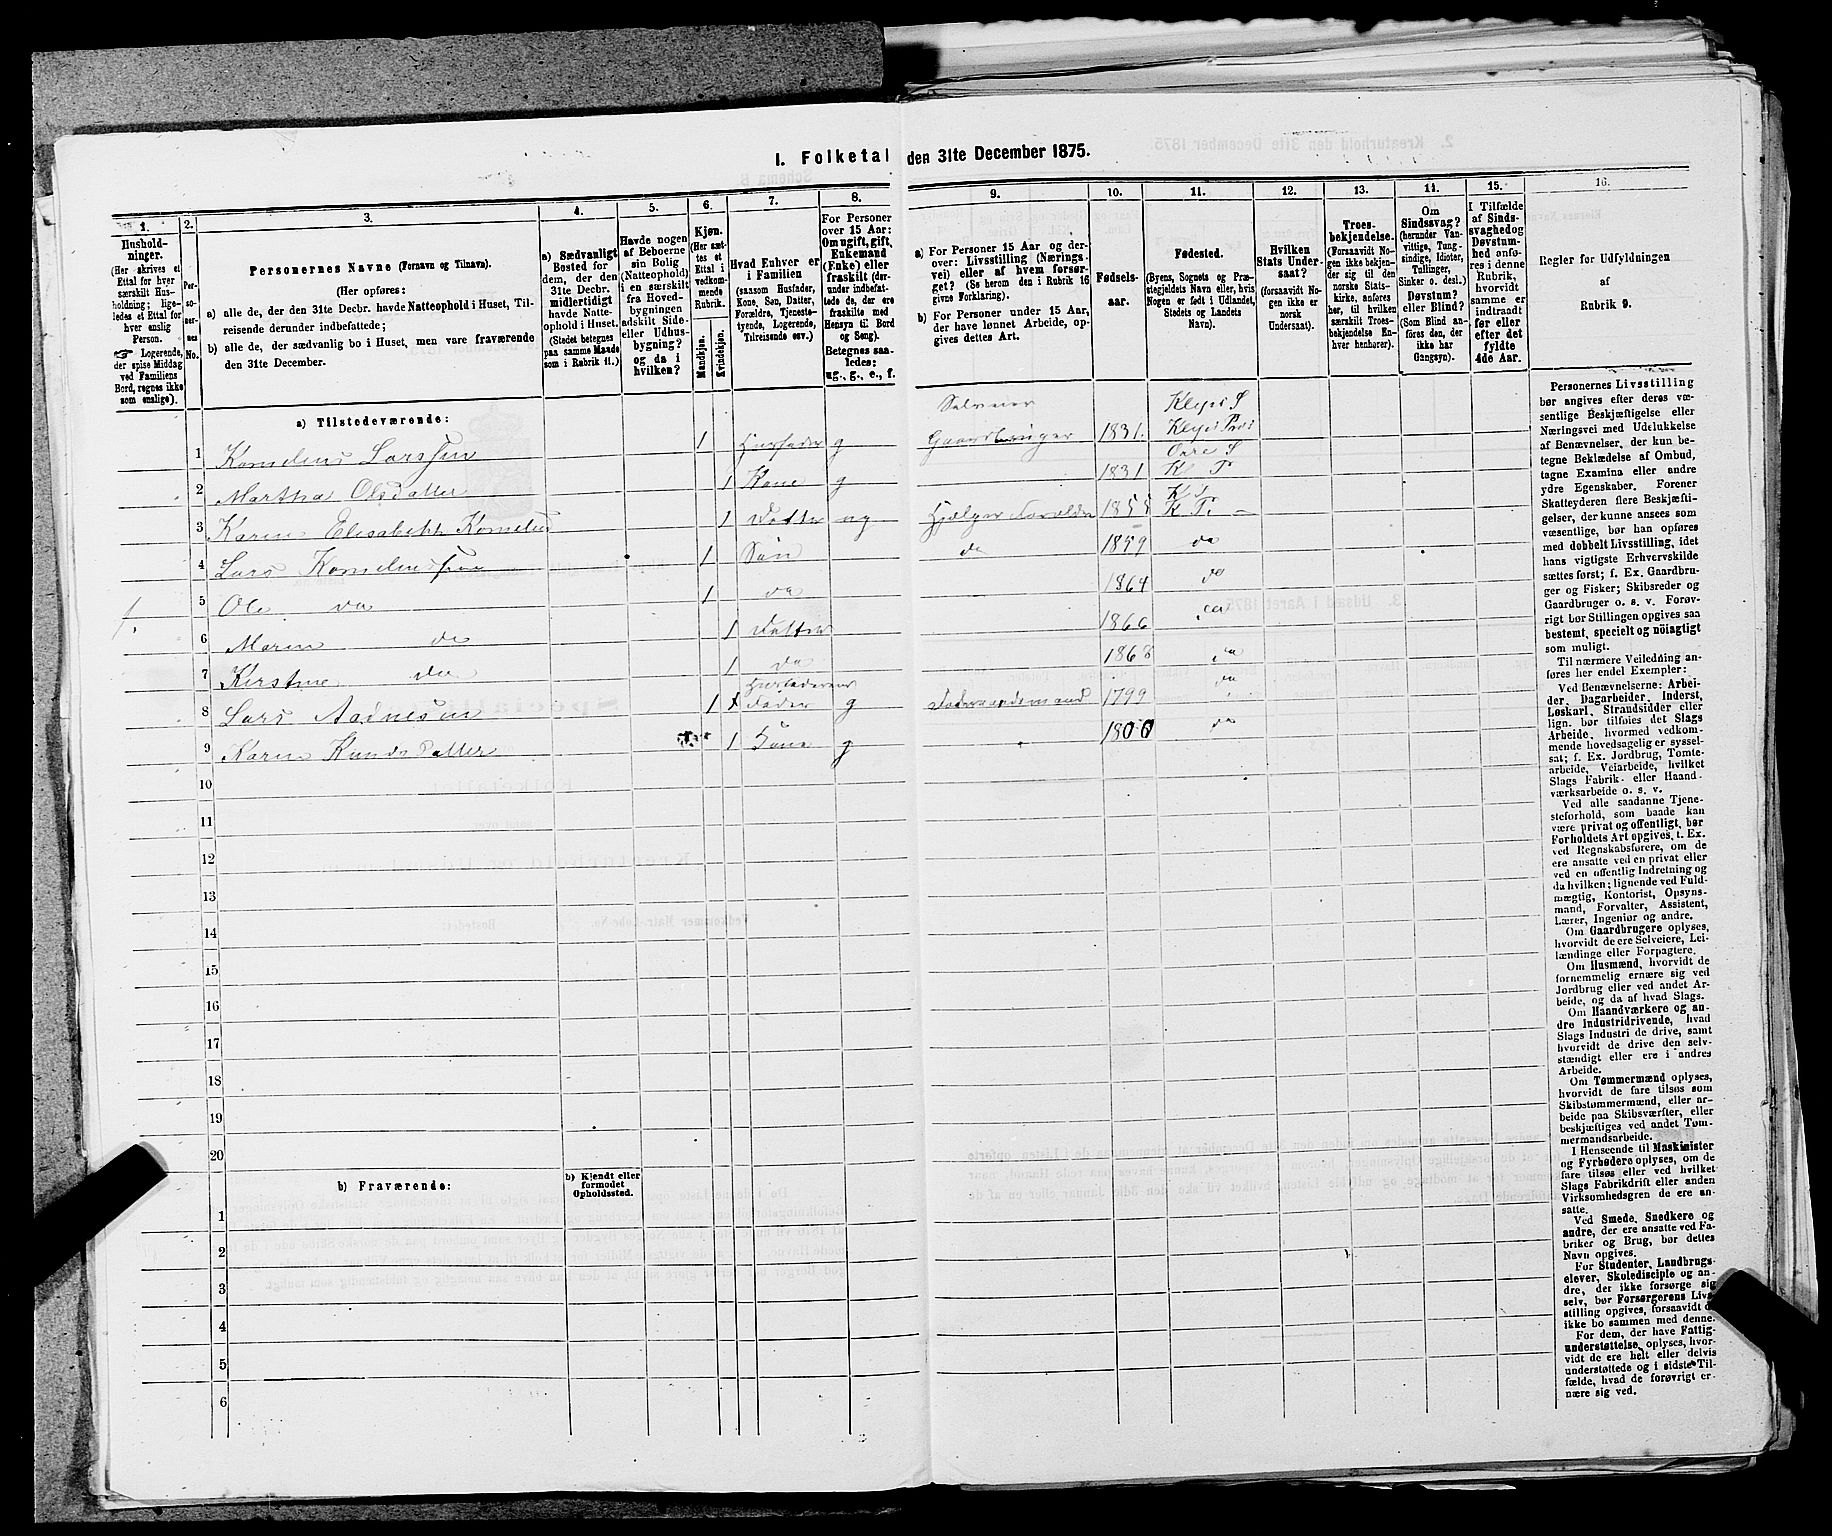 I. Folketal den 31te December 1875.
1. 2. 3. 4. 5. 6. 7. 8. 9. 10. 11. 12. 13. 14. 15. 16.
Hushold-
ninger.
(Her skrives et
Ettal for hver
særskilt Hus-
holdning; lige-
ledes et Ettal for
hver enslig
Person.
☞ Logerende,
der spise Middag
ved Familiens
Bord, regnes ikke
som enslige).
Per-
so-
ner-
nes
No.
Personernes Navne (Fornavn og Tilnavn).
(Her opføres:
a) alle de, der den 31te Decbr. havde Natteophold i Huset, Til-
reisende derunder indbefattede;
b) alle de, der sædvanlig bo i Huset, men vare fraværende
den 31te December.
a) Sædvanligt
Bosted for
dem, der den
31te Decbr.
midlertidigt
havde Natte-
ophold i Huset.
(Stedet betegnes
paa samme Maade
som i Rubrik 11.)
Havde nogen
af Beboerne
sin Bolig
(Natteophold)
i en særskilt
fra Hoved-
bygningen
adskilt Side-
eller Udhus-
bygning?
og da i
hvilken?
Kjøn.
(Her sæt-
tes et
Ettal i
vedkom-
mende
Rubrik.
Mandkjøn.
Kvindekjøn.
Hvad Enhver er
i Familien
(saasom Husfader,
Kone, Søn, Datter,
Forældre, Tjeneste-
tyende, Logerende,
Tilreisende osv.)
For Personer
over 15 Aar:
Om ugift, gift,
Enkemand
(Enke) eller
fraskilt (der-
under indbefat-
tede de, der ere
fraskilte med
Hensyn til Bord
og Seng).
Betegnes saa-
ledes:
ug., g., e., f.
a) For Personer 15 Aar og der-
over: Livsstilling (Nærings-
vei) eller af hvem forsør-
get? (Se herom den i Rubrik 16
givne Forklaring.)
b) For Personer under 15 Aar,
der have lønnet Arbeide, op-
gives dettes Art.
Fødsels-
aar.
Fødested.
(Byens, Sognets og Præ-
stegjeldets Navn eller, hvis
Nogen er født i Udlandet,
Stedets og Landets
Navn).
Hvilken
Stats Under-
saat?
(forsaavidt No-
gen ikke er
norsk
Undersaat).
Troes-
bekjendelse.
(Forsaavidt No-
gen ikke bekjen-
der sig til den
norske Stats-
kirke, anføres
her, til hvilken
særskilt Troes-
bekjendelse En-
hver henhører).
Om
Sindssvag?
(herunder Van-
vittige, Tung-
sindige, Idioter,
Tullinger,
Sinker o. desl.)
Døvstum?
eller Blind?
(Som Blind an-
føres den, der
ikke har
Gangsyn).
I Tilfælde
af Sinds-
svaghed og
Døvstum-
hed anfø-
res i denne
Rubrik,
hvorvidt
samme er
indtraadt
før eller
efter det
fyldte
4de Aar.
Regler for Udfyldningen
af
Rubrik 9.
a) Tilstedeværende:
1 Kornelius Larssen 1 Husfader g Selveier Gaardbruger 1831. Klepp S Klepp Præs
2 Martha Olsdatter 1 Kone g 1831 Orre S K P
3 Karen Elisabeth Kornelius 1 Datter ug Hjælper Forældre 1855 K S K P.
4 Lars Korneliussen 1 Søn do 1859 do
1. 5 Ole do 1 do 1864 do
6 Maren do 1 Datter 1866 do
7 Kirstine do 1 do 1868 do
8 Lars Aadnesen 1 Husfaderens Fader g Føderaadsmand 1799 do
9 Karen Knudsdatter 1 Kone g 1800 do
10
11
12
13
14
15
16
17
18
19
20
b) Fraværende:
b) Kjendt eller
formodet
Opholdssted.
1
2
3
4
5
6
Personernes Livsstilling
bør angives efter deres væ-
sentlige Beskjæftigelse eller
Næringsvei med Udelukkelse
af Benævnelser, der kun be-
tegne Beklædelse af Ombud,
tagne Examina eller andre
ydre Egenskaber. Forener
Skatteyderen flere Beskjæfti-
gelser, der kunne ansees som
væsentlige, bør han opføres
med dobbelt Livsstilling, idet
hans vigtigste Erhvervskilde
sættes først; f. Ex. Gaardbru-
ger og Fisker; Skibsreder og
Gaardbruger o. s. v. Forøv-
rigt bør Stillingen opgives saa
bestemt, specielt og nöiagtigt
som muligt.
Til nærmere Veiledning an-
føres her endel Exempler:
Ved Benævnelserne: Arbei-
der, Dagarbeider, Inderst,
Løskarl, Strandsidder eller
lign. bør tilføies det Slags
Arbeide, hvormed vedkom-
mende hovedsagelig er syssel-
sat; f. Ex. Jordbrug, Tømte-
arbeide, Veiarbeide, hvilket
Slags Fabrik- eller Haand-
værksarbeide o. s. v.
Ved alle saadanne Tjene-
steforhold, som baade kan
være privat og offentligt, bør
Forholdets Art opgives, t. Ex.
ved Regnskabsførere, om de
ere ansatte ved en privat eller
ved en offentlig Indretning og
da hvilken; lignende ved Fuld-
mægtig, Kontorist, Opsyns-
mand, Forvalter, Assistent,
Lærer, Ingeniør og andre.
Om Gaardbrugere oplyses,
hvorvidt de ere Selveiere, Lei-
lændinge eller Forpagtere.
Om Husmænd, hvorvidt de
fornemmelig ernære sig ved
Jordbrug eller ved andet Ar-
beide, og da af hvad Slags.
Om Haandværkere og an-
dre Industridrivende, hvad
Slags Industri de drive, samt
hvorvidt de drive den selv-
stændigt eller ere i andres
Arbeide.
Om Tømmermænd oplyses,
hvorvidt de fare tilsøs som
Skibstømmermænd, eller ar-
beide paa Skibsværfter, eller
beskjæftiges ved andet Tøm-
mermandsarbeide.
I Henseende til Maskinister
og Fyrbødere oplyses, om de
fare tilsøs eller ved hvilket
Slags Fabrikdrift eller anden
Virksomhedsgren de ere an-
satte.
Ved Smede, Snedkere og
andre, der ere ansatte ved Fa-
briker og Brug, bør dettes
Navn opgives.
For Studenter, Landbrugs-
elever, Skoledisciple og an-
dre, der ikke forsørge sig
selv, bør Forsørgerens Livs-
stilling opgives, forsaavidt de
ikke bo sammen med denne.
For dem, der have Fattig-
understøttelse, oplyses, hvor-
vidt de ere helt eller delvis
understøttede og i sidste Til-
fælde, hvad de forøvrigt er-
nære sig ved.